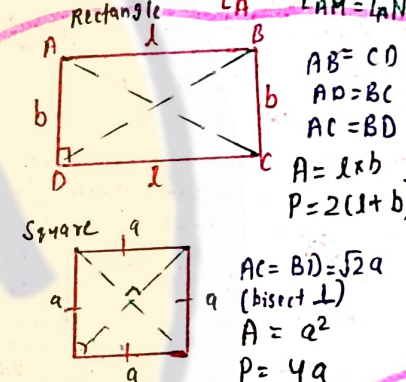 Rectangle
∠A ∠AM = ∠AN
A l B
b b
D l C
AB = CD
AD = BC
AC = BD
A = l×b
P = 2(l+b)
Square
a
a a
a
AC = BD = √2 a
(bisect ⊥)
A = a²
P = 4a